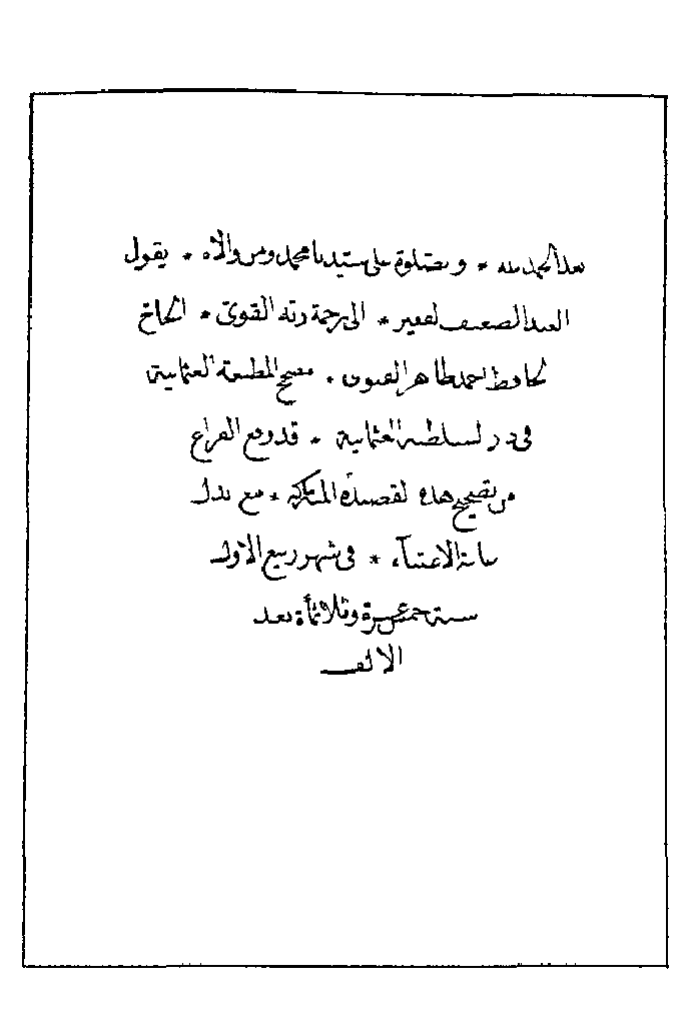 بعد الحمد لله * والصلوة على سيدنا محمد ومن والاه * يقول
العبد الضعيف الفقير * الى رحمة ربه القوى * الحاج
الحافظ احمد طاهر القنوى * مصحح المطبعة العثمانية
فى دار السلطنة العثمانية * قد وقع الفراغ
من تصحيح هذه القصيدة المباركة * مع بذل
غاية الاعتناء * فى شهر ربيع الاول
سنة خمس عشرة وثلاثمأة بعد
الالف